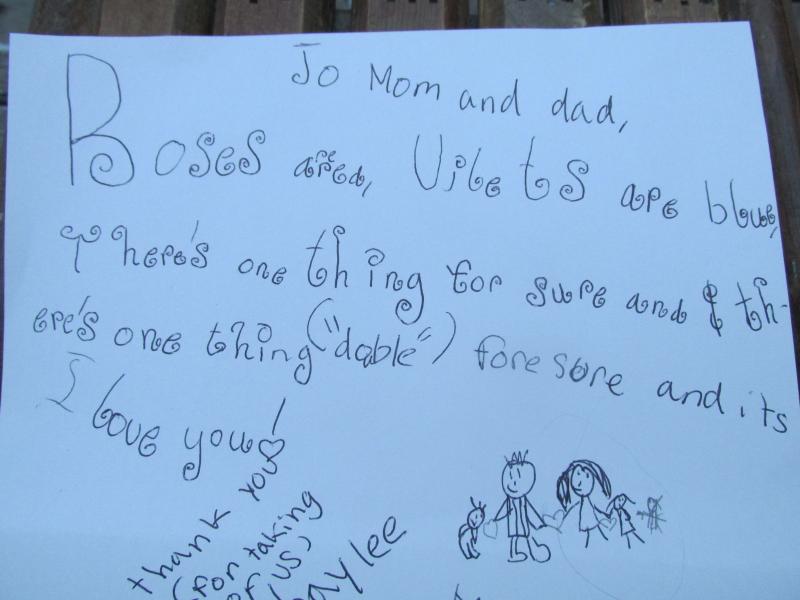 To Mom and dad,
Roses are red, Vilets are blue,
There's one thing for sure and th-
ere's one thing ("dable") fore sore and its
I love you!
thank you
(for taking
of (us)
aylee